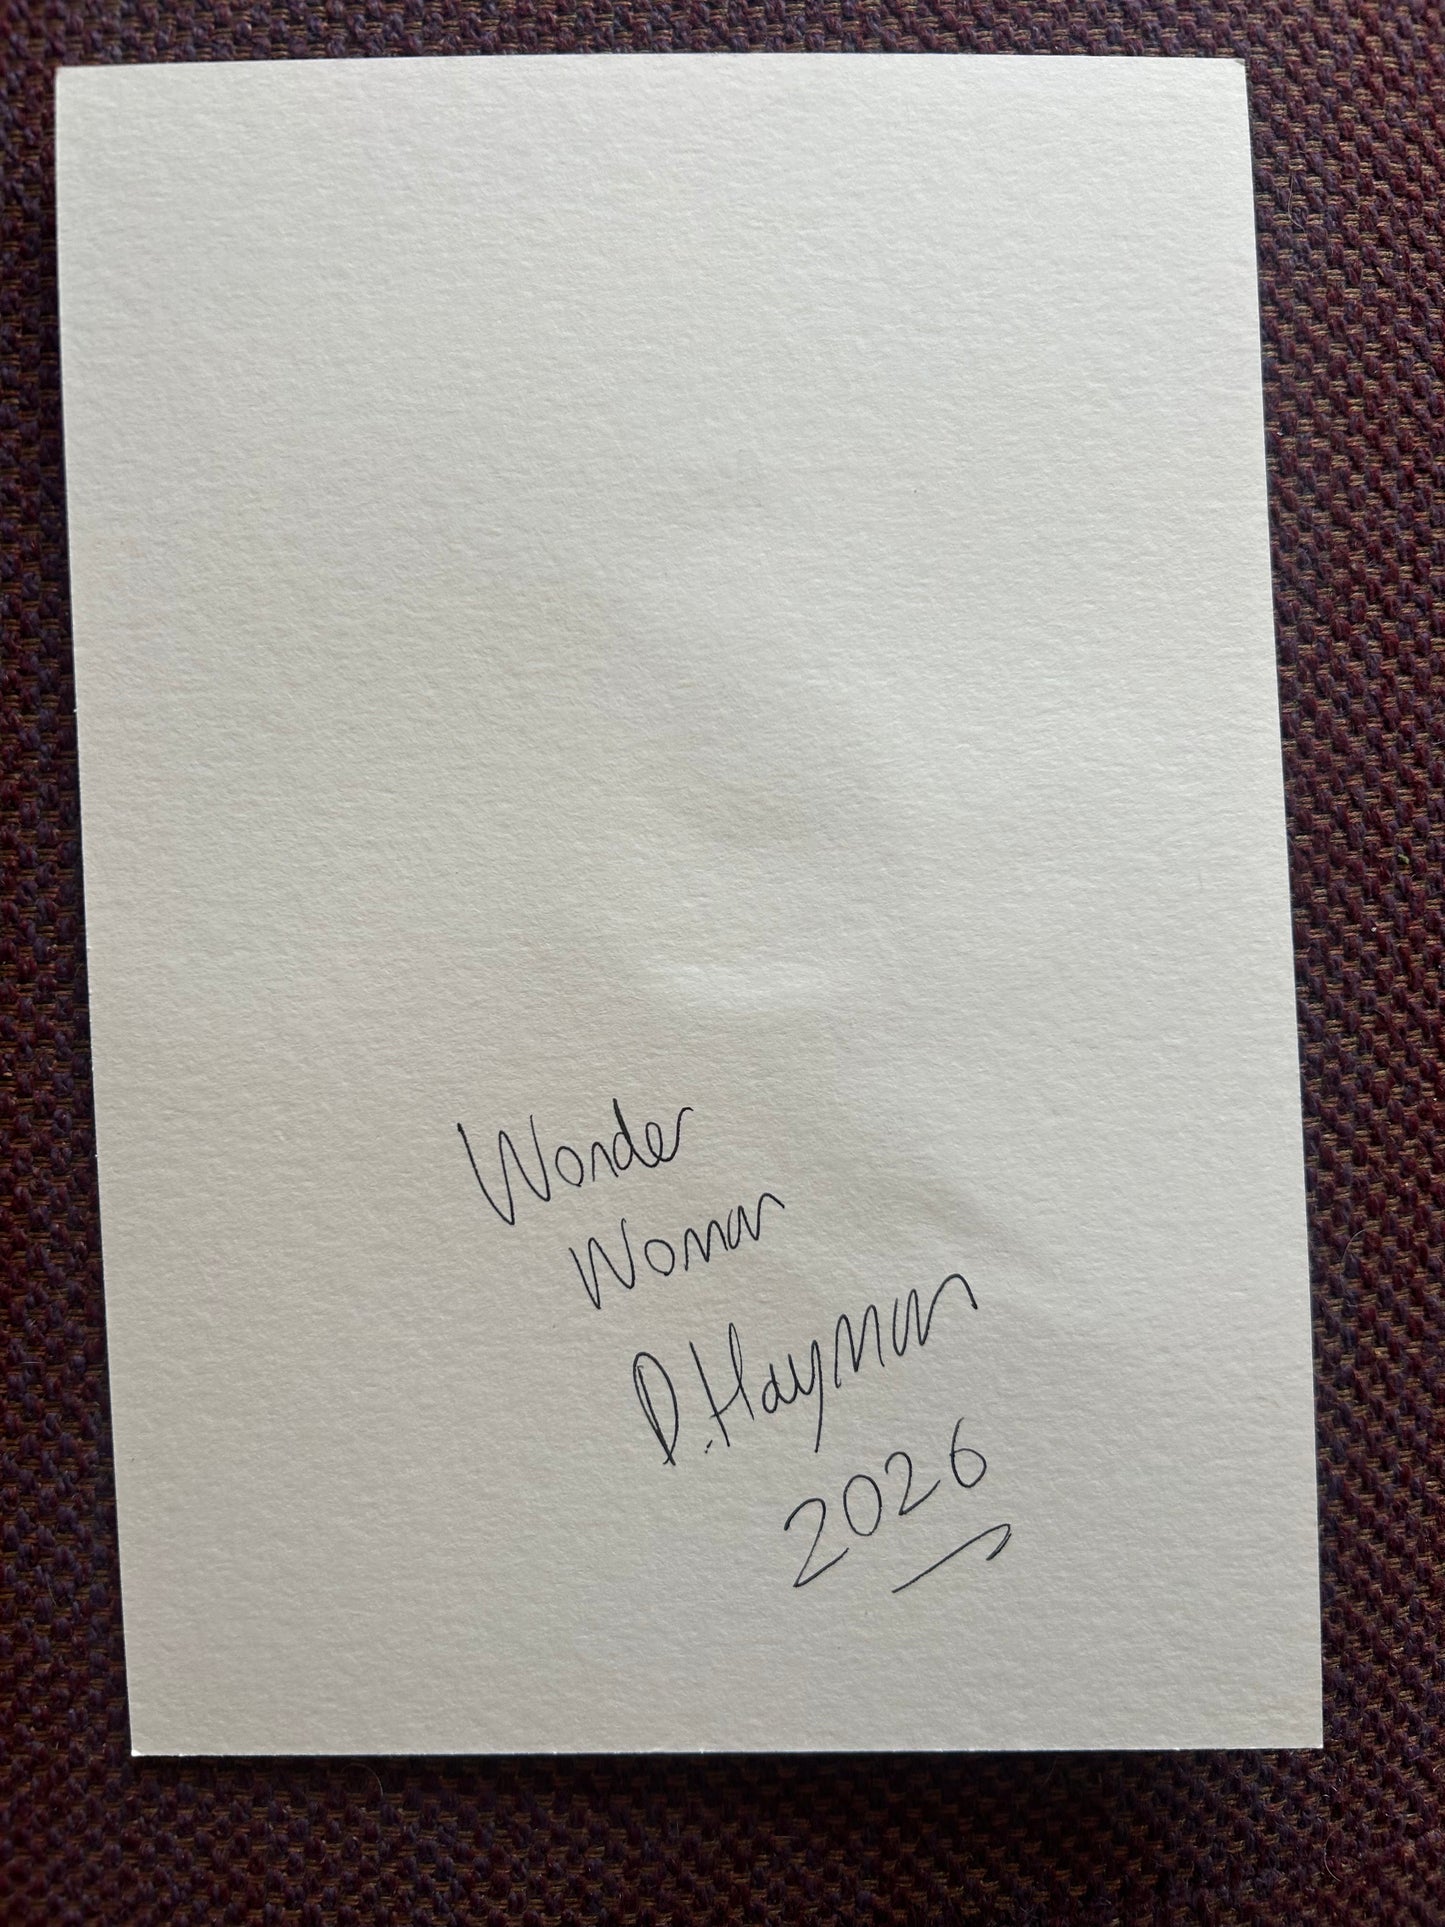 Wonder
Woman
D. Hayman
2026